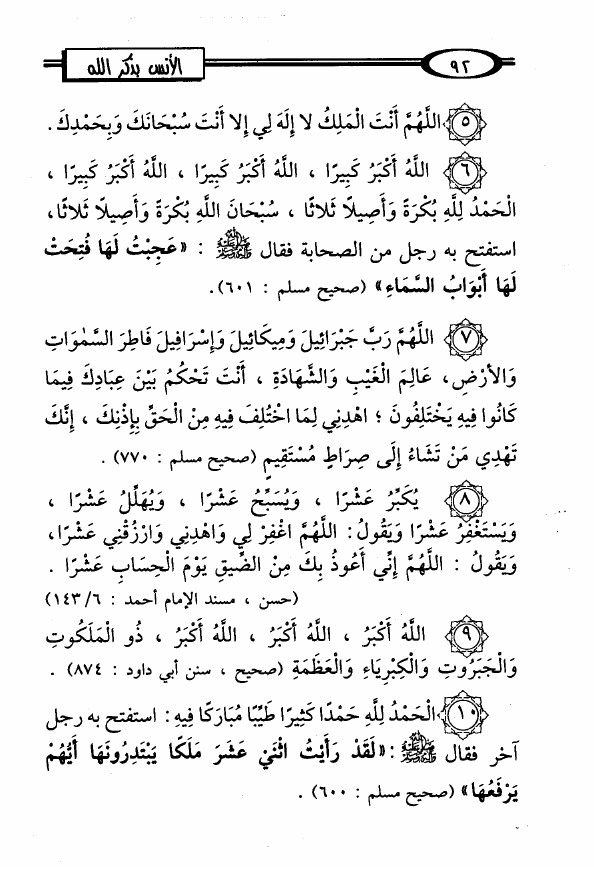 ٩٢ الأنس بذكر الله
٥ اللَّهُمَّ أَنْتَ الْمَلِكُ لا إِلَهَ لِي إِلا أَنْتَ سُبْحَانَكَ وَبِحَمْدِكَ.
٦ اللَّهُ أَكْبَرُ كَبِيرًا ، اللَّهُ أَكْبَرُ كَبِيرًا ، اللَّهُ أَكْبَرُ كَبِيرًا ،
الْحَمْدُ لِلَّهِ بُكْرَةً وَأَصِيلًا ثَلاثًا ، سُبْحَانَ اللَّهِ بُكْرَةً وَأَصِيلًا ثَلاثًا،
استفتح به رجل من الصحابة فقال ﷺ : «عَجِبْتُ لَهَا فُتِحَتْ
لَهَا أَبْوَابُ السَّمَاءِ» (صحيح مسلم : ٦٠١).
٧ اللَّهُمَّ رَبَّ جَبْرَائِيلَ وَمِيكَائِيلَ وَإِسْرَافِيلَ فَاطِرَ السَّمٰوَاتِ
وَالأَرْضِ، عَالِمَ الْغَيْبِ وَالشَّهَادَةِ ، أَنْتَ تَحْكُمُ بَيْنَ عِبَادِكَ فِيمَا
كَانُوا فِيهِ يَخْتَلِفُونَ ؛ اهْدِنِي لِمَا اخْتُلِفَ فِيهِ مِنْ الْحَقِّ بِإِذْنِكَ ، إِنَّكَ
تَهْدِي مَنْ تَشَاءُ إِلَى صِرَاطٍ مُسْتَقِيمٍ (صحيح مسلم : ٧٧٠) .
٨ يُكَبِّرُ عَشْرًا ، وَيُسَبِّحُ عَشْرًا ، وَيُهَلِّلُ عَشْرًا ،
وَيَسْتَغْفِرُ عَشْرًا وَيَقُولُ : اللَّهُمَّ اغْفِرْ لِي وَاهْدِنِي وَارْزُقْنِي عَشْرًا،
وَيَقُولُ : اللَّهُمَّ إِنِّي أَعُوذُ بِكَ مِنْ الضِّيقِ يَوْمَ الْحِسَابِ عَشْرًا .
(حسن ، مسند الإمام أحمد : ١٤٣/٦)
٩ اللَّهُ أَكْبَرُ ، اللَّهُ أَكْبَرُ ، اللَّهُ أَكْبَرُ ، ذُو الْمَلَكُوتِ
وَالْجَبَرُوتِ وَالْكِبْرِيَاءِ وَالْعَظَمَةِ (صحيح ، سنن أبي داود : ٨٧٤) .
١٠ الْحَمْدُ لِلَّهِ حَمْدًا كَثِيرًا طَيِّبًا مُبَارَكًا فِيهِ : استفتح به رجل
آخر فقال ﷺ :«لَقَدْ رَأَيْتُ اثْنَيْ عَشَرَ مَلَكًا يَبْتَدِرُونَهَا أَيُّهُمْ
يَرْفَعُهَا» (صحيح مسلم : ٦٠٠) .